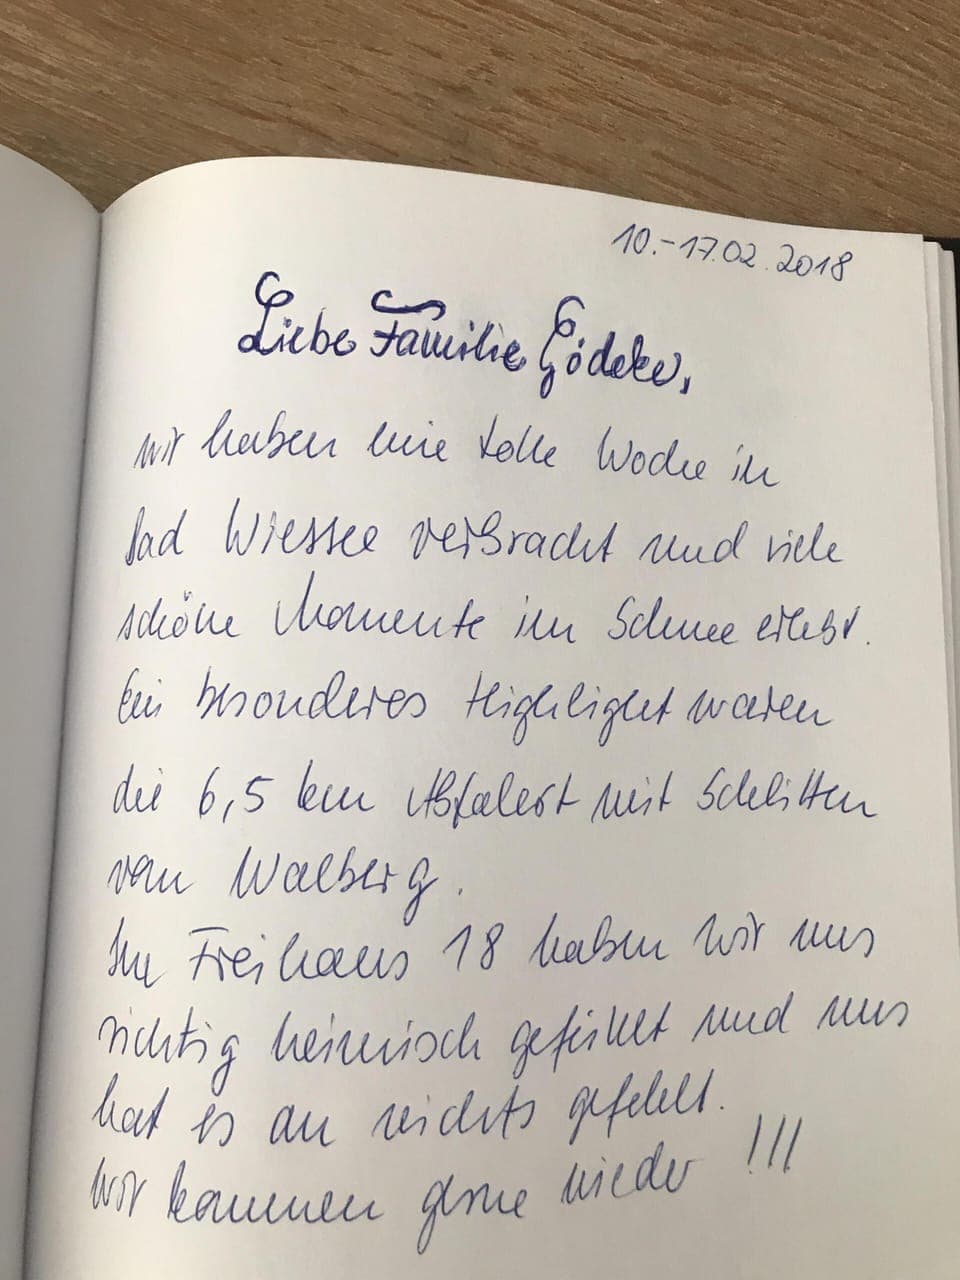 10.-17.02.2018
Liebe Familie Gödeke,
wir haben eine tolle Woche in
Bad Wiessee verbracht und viele
schöne Momente im Schnee erlebt.
Ein besonderes Highlight waren
die 6,5 km Abfahrt mit Schlitten
vom Walberg.
Im Freihaus 18 haben wir uns
richtig heimisch gefühlt und uns
hat es an nichts gefehlt.
Wir kommen gerne wieder !!!